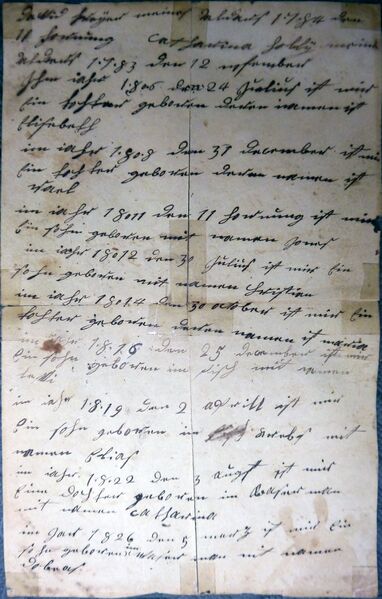 meines alders 1784 den
11 hornung Catharina
alders 1783 den 12
Ihm iahr 1806 den 24 Julius ist mir
Ein tochter geboren deren namen ist
Elisebeth
im iahr 1808 den 31 december ist mir
Ein tochter geboren deren namen ist
im iahr 18011 den 11 hornung ist mir
Ein sohn geboren mit namen Jones
im iahr 18012 den 30 Julius ist mir Ein
sohn geboren mit namen Christian
im iahr 18014 den 30 october ist mir Ein
tochter geboren deren namen ist maria
im iahr 1816 den 25 december ist mir
Ein sohn geboren im fisch mit namen
im iahr 1819 den 2 aprill ist mir
Ein sohn geboren im krebs mit
namen Elias
im iahr 1822 den 3 augst ist mir
Eine dochter geboren in Waser man
mit namen Catharina
im Jar 1826 den 9 merz ist mir Ein
sohn geboren im Waser man mit namen